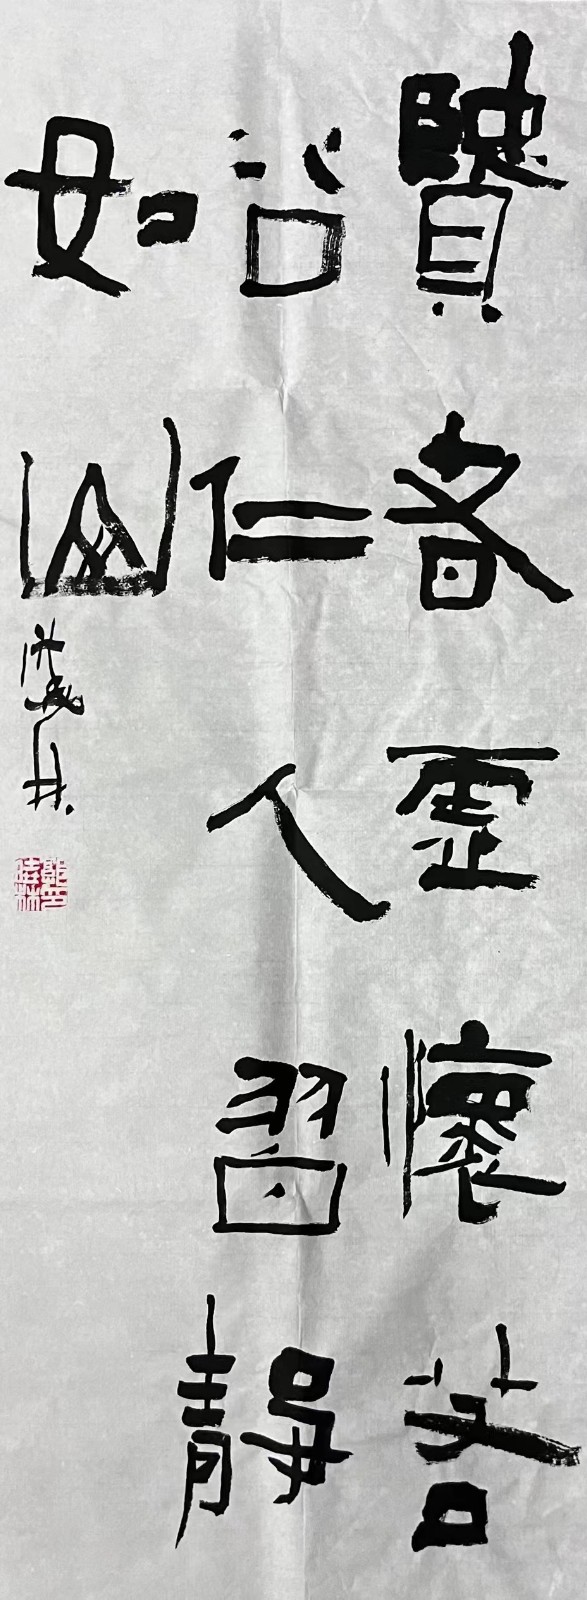 賢者虛懷若
谷仁人習靜
如山